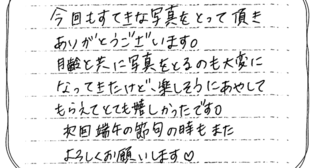 今回もすてきな写真をとって頂き
ありがとうございます。
月齢と共に写真をとるのも大変に
なってきたけど、楽しそうにあやして
もらえてとても嬉しかったです。
次回端午の節句の時もまた
よろしくお願いします♡